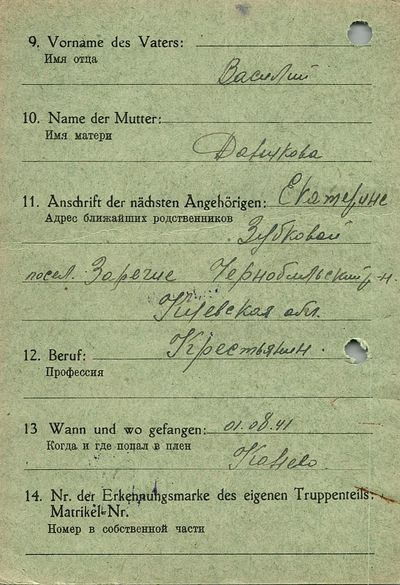 9. Vorname des Vaters:
Имя отца
Василий
10. Name der Mutter:
Имя матери
Давыкова
11. Anschrift der nächsten Angehörigen: Екатерине
Адрес ближайших родственников
Зубковой
посел. Зорегие Чернобильский р-н.
Киевская обл.
12. Beruf: Крестьянин.
Профессия
13 Wann und wo gefangen: 01.08.41
Когда и где попал в плен
Канево
14. Nr. der Erkennungsmarke des eigenen Truppenteils:
Matrikel-Nr.
Номер в собственной части